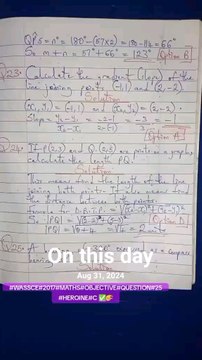 QP̂S = n° = 180° - (57×2) = 180 - 114 = 66°
So m + n = 57° + 66° = 123° Option B
Q23: Calculate the gradient (slope) of the
line joining points (-1,1) and (2,-2)
Solution
(x₁, y₁) = (-1, 1) and (x₂, y₂) = (2, -2)
Slope = y₂-y₁ = -2-1 = -3 = -1
x₂-x₁ 2-(-1) 3 Option A
Q24: If P(2,3) and Q(2,5) are points on a graph,
calculate the length PQ.
Solution
This mean find the length of the line
joining both points. It also means find
the distance between both points.
So |PQ| =
|PQ| = √0+4 = √4 = 2 units
Q25: A
On this day
Aug 31, 2024
#WASSCE#2017#MATHS#OBJECTIVE#QUESTION#25
#HEROINE#C ✅🥰